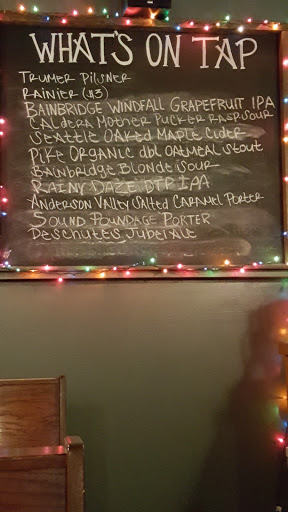 WHAT'S ON TAP
TRUMER PILSNER
RAINIER ($3)
BAINBRIDGE WINDFALL GRAPEFRUIT IPA
CALDERA MOTHER PUCKER RASP SOUR
SEATTLE OAKED MAPLE CIDER
PIKE ORGANIC dbl OATMEAL STOUT
BAINBRIDGE BLONDE SOUR
RAINY DAZE DTP IAA
ANDERSON VALLEY SALTED CARAMEL PORTER
SOUND POUNDAGE PORTER
DESCHUTES JUBELALE